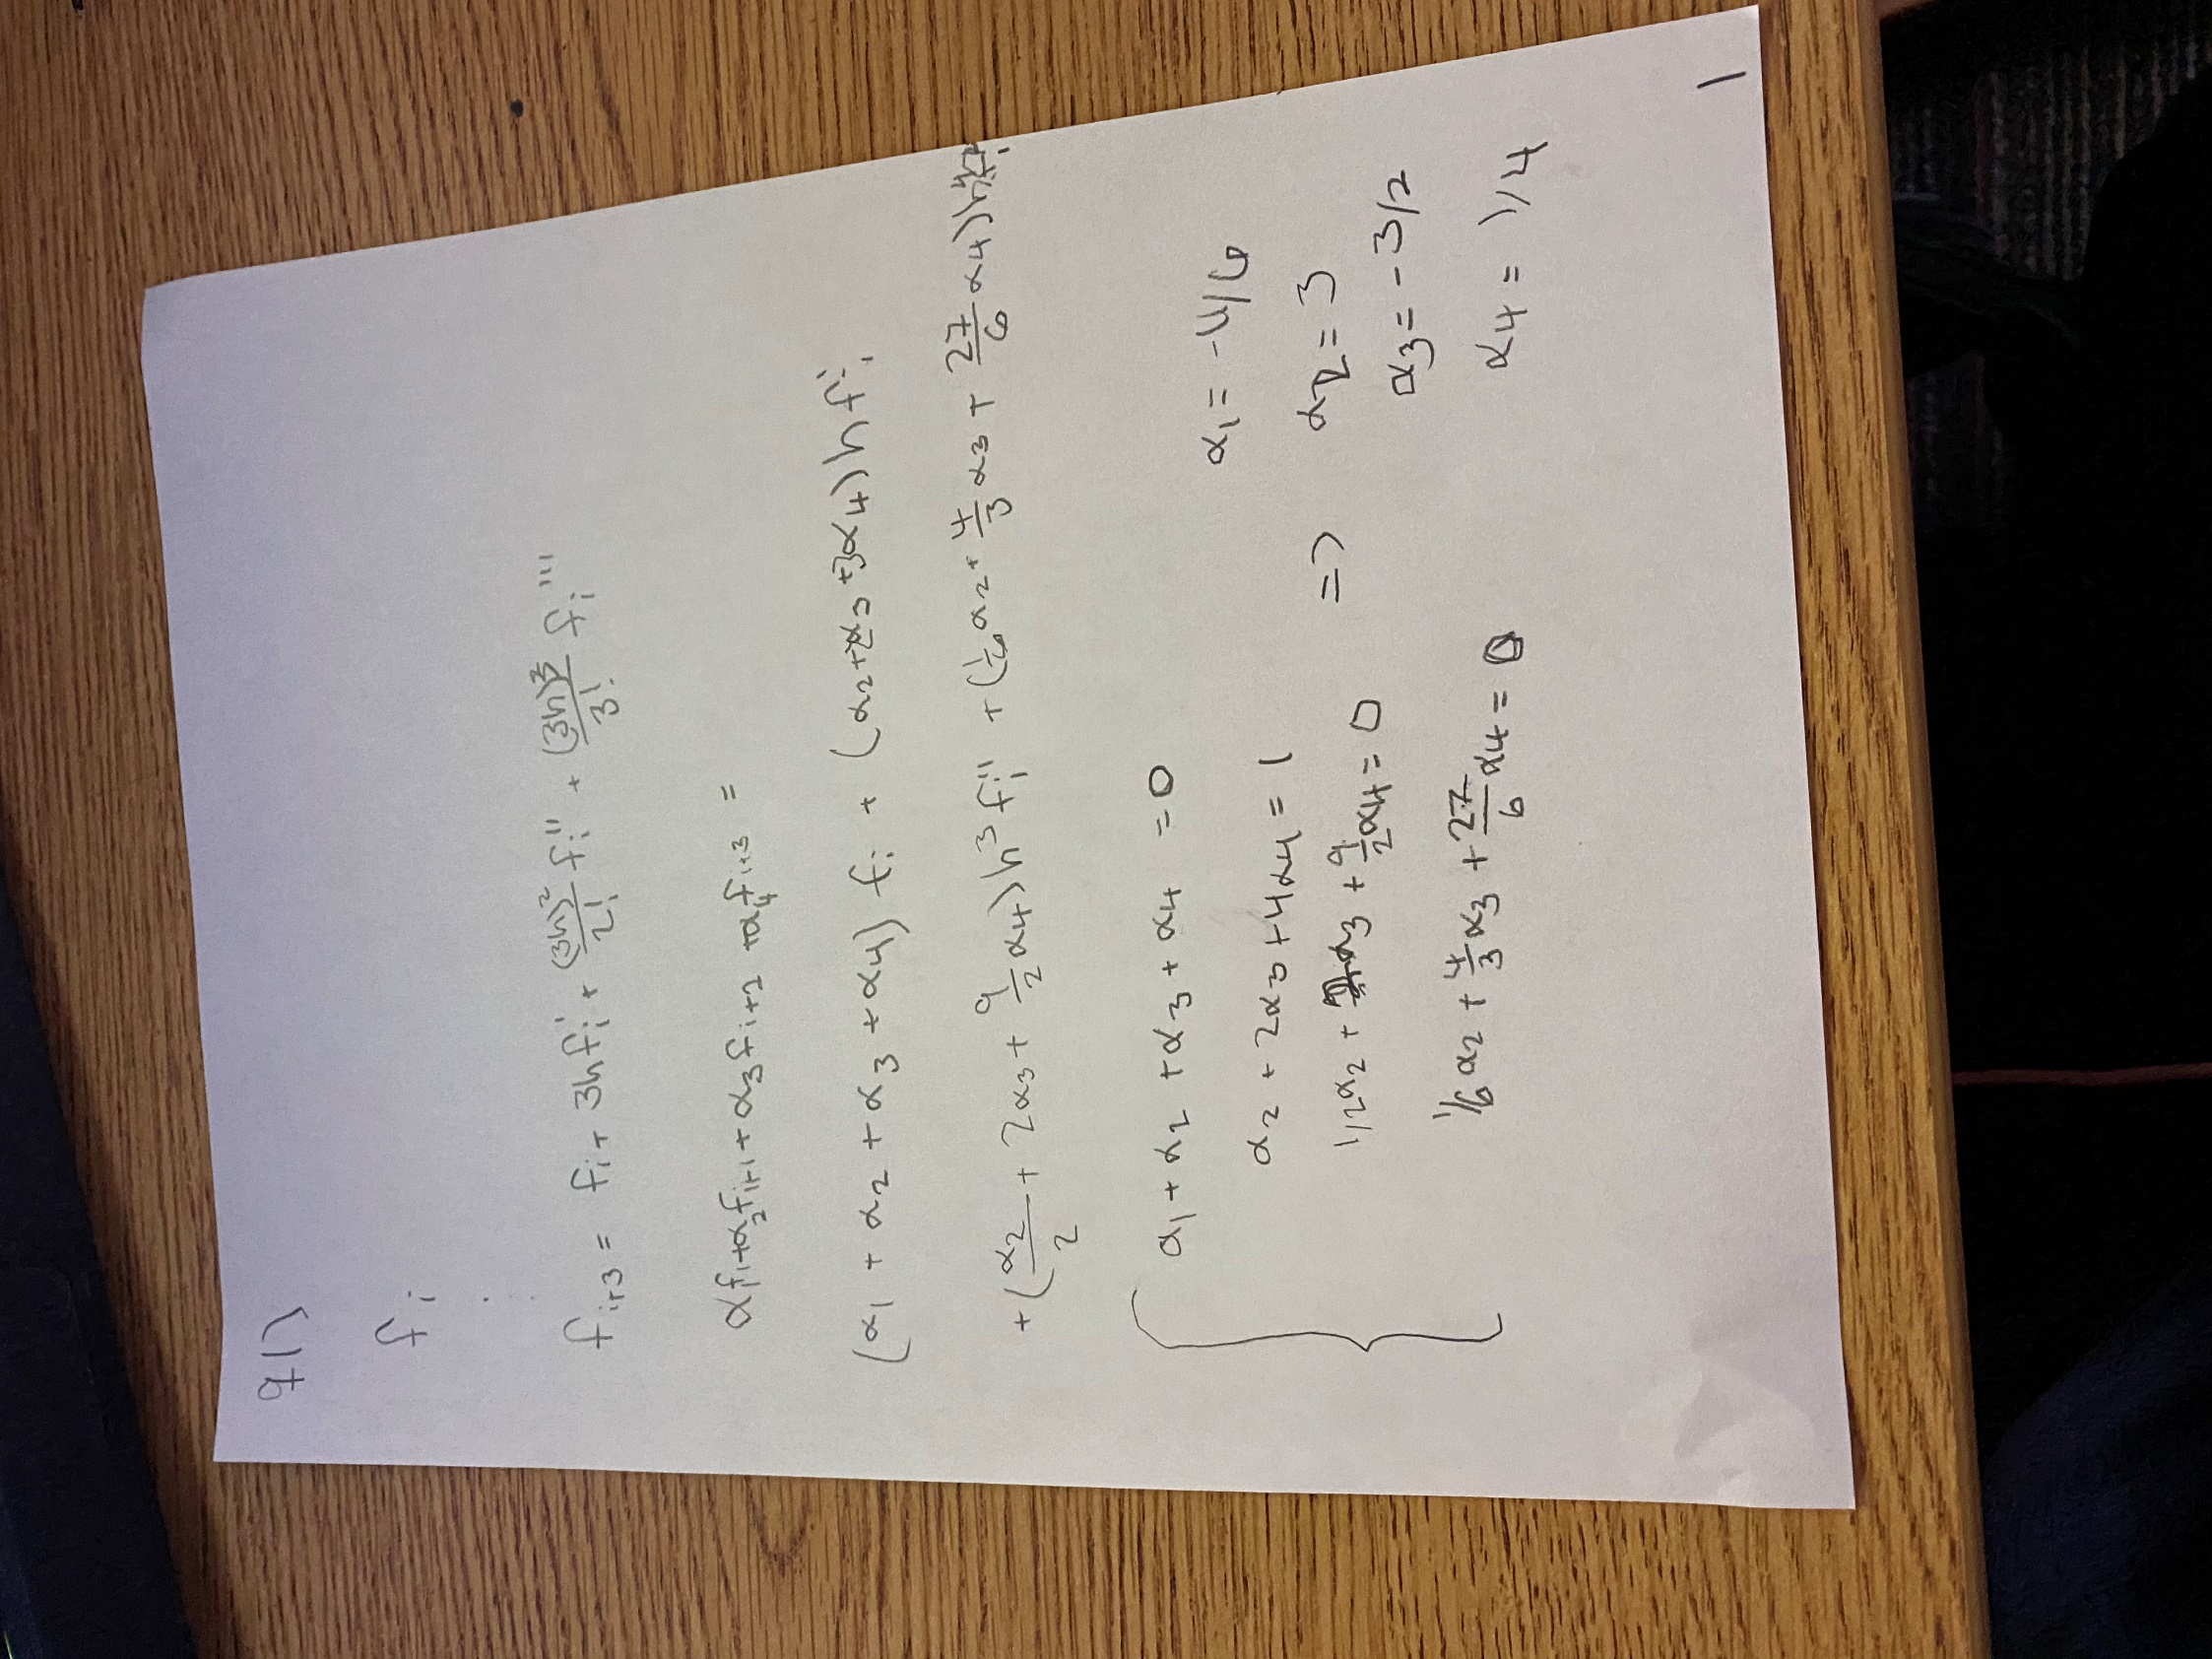 q1)
fi
fi+3 = fi + 3hfi' + (3h)²/2! fi'' + (3h)³/3! fi'''
α1fi+α2fi+1+α3fi+2+α4fi+3 =
(α1 + α2 + α3 + α4) fi + (α2+2α3+3α4)hfi'
+(α2/2 + 2α3 + 9/2 α4)h³fi'' + (1/6 α2 + 4/3 α3 + 27/6 α4)
α1 + α2 + α3 + α4 = 0
α2 + 2α3 + 4α4 = 1
1/2α2 + α3 + 9/2 α4 = 0
1/6 α2 + 4/3 α3 + 27/6 α4 = 0
=>
α1 = -4/6
α2 = 3
α3 = -3/2
α4 = 1/4
1